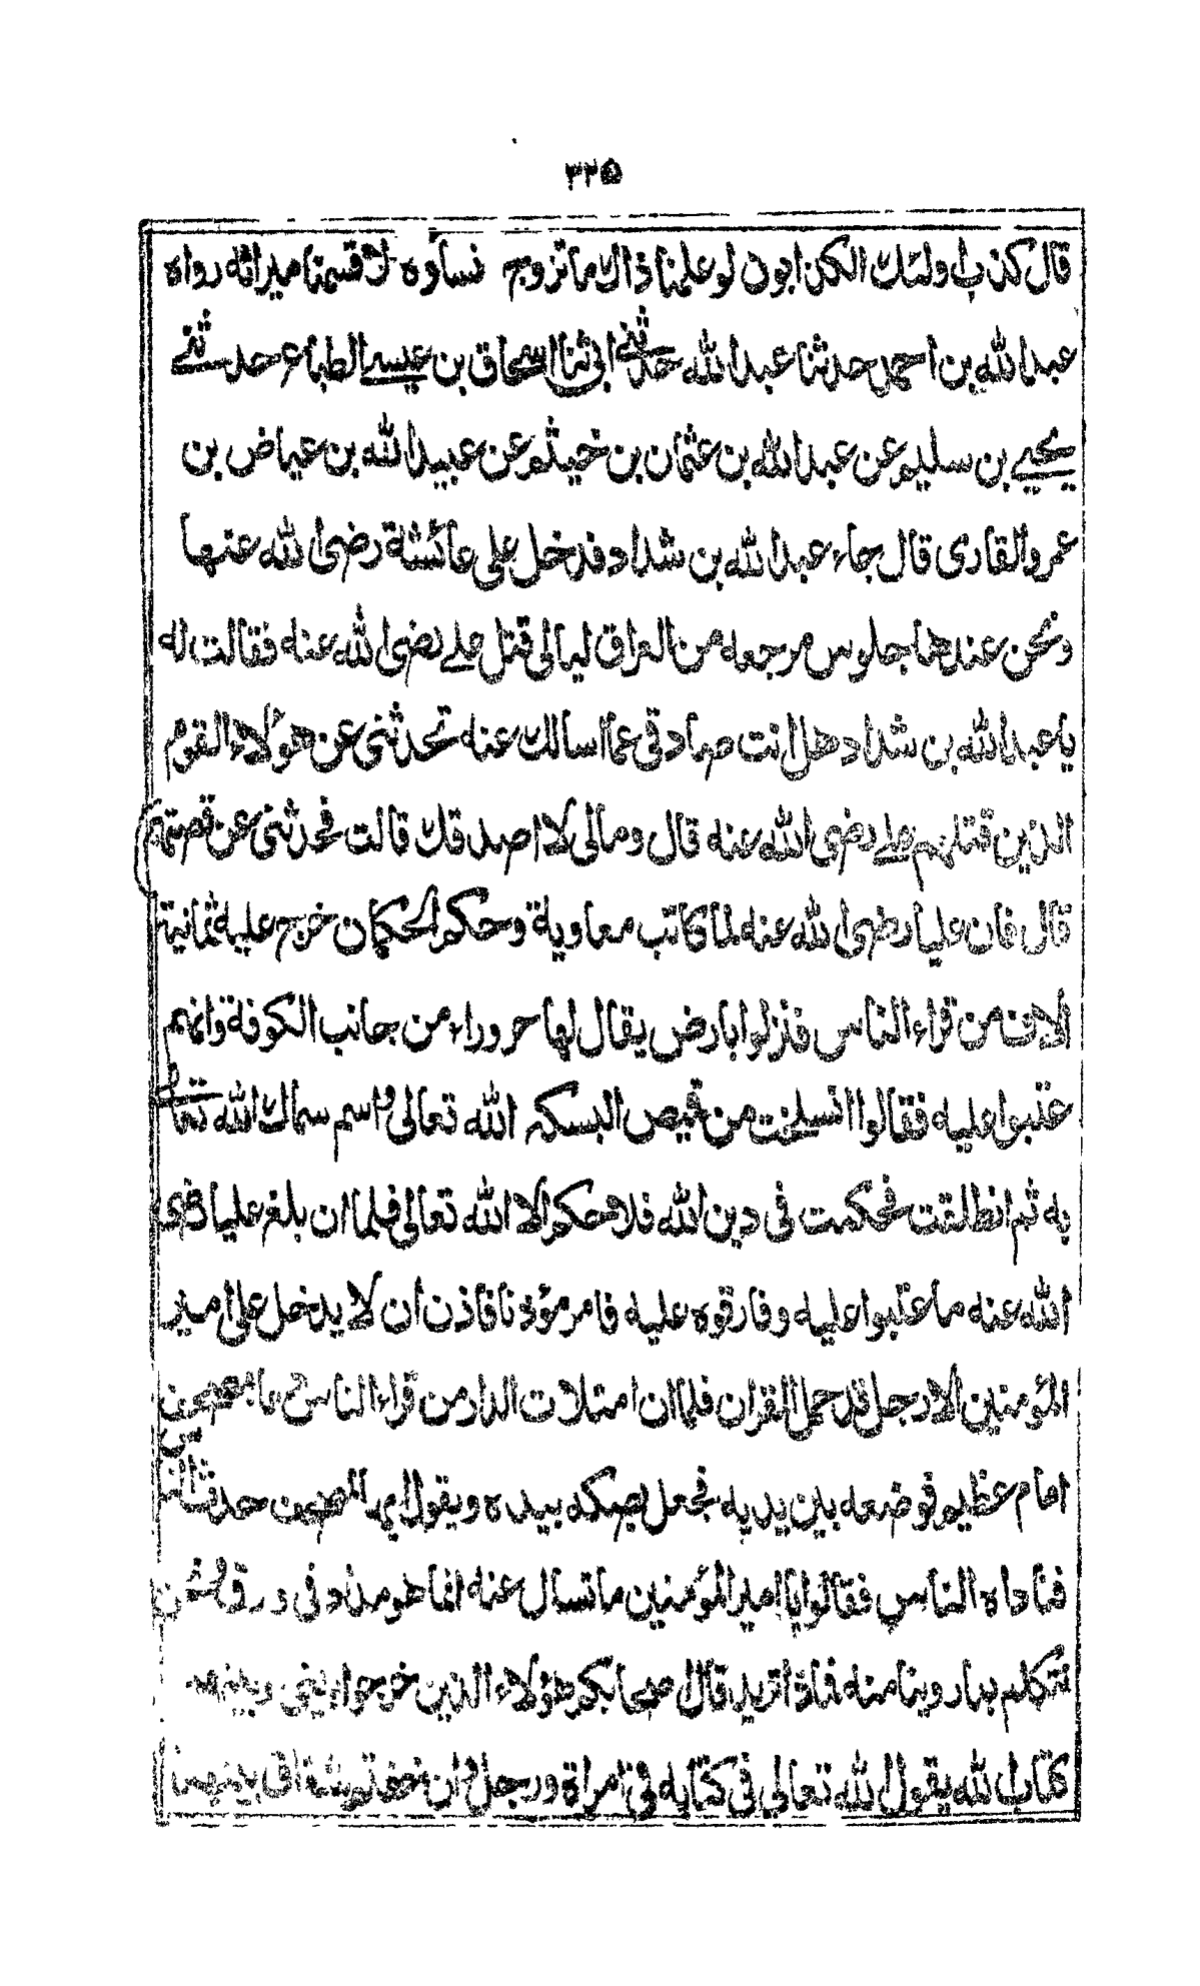 ٣٢٥
قال كذب اولئك الكذابون لو علمنا ذاك ما تزوج نساؤه لا قسمنا ميراثه رواه
عبدالله بن احمد حدثنا عبدالله حدثني ابي ثنا اسحاق بن عيسى الطباع حدثني
يحيى بن سليم عن عبدالله بن عثمان بن خيثم عن عبيدالله بن عياض بن
عمرو القاري قال جاء عبدالله بن شداد فدخل على عائشة رضي الله عنها
ونحن عندها جلوس مرجعه من العراق ليالي قتل علي رضي الله عنه فقالت له
يا عبدالله بن شداد هل انت صادقي عما اسالك عنه تحدثني عن هؤلاء القوم
الذين قتلهم علي رضي الله عنه قال ومالي لا اصدقك قالت فحدثني عن قصتهم
قال فان عليا رضي الله عنه لما كاتب معاوية وحكم الحكمان خرج عليه ثمانية
الاف من قراء الناس فنزلوا بارض يقال لها حروراء من جانب الكوفة وانهم
عتبوا عليه فقالوا انسلخت من قميص البسكه الله تعالى واسم سماك الله تعالى
به ثم انطلقت فحكمت في دين الله فلا حكم الا الله تعالى فلما ان بلغ عليا رضي
الله عنه ما عتبوا عليه وفارقوه عليه فامر مؤذنا فاذن ان لا يدخل على امير
المؤمنين الا رجل قد حمل القران فلما ان امتلات الدار من قراء الناس دعا بمصحف
امام عظيم فوضعه بين يديه فجعل يصكه بيده ويقول ايها المصحف حدث الناس
فناداه الناس فقالوا يا امير المؤمنين ما تسال عنه انما هو مداد في ورق ونحن
نتكلم بما روينا منه فماذا تريد قال اصحابكم هؤلاء الذين خرجوا بيني وبينهم
كتاب الله يقول الله تعالى في كتابه في امراة ورجل وان خفتم شقاق بينهما